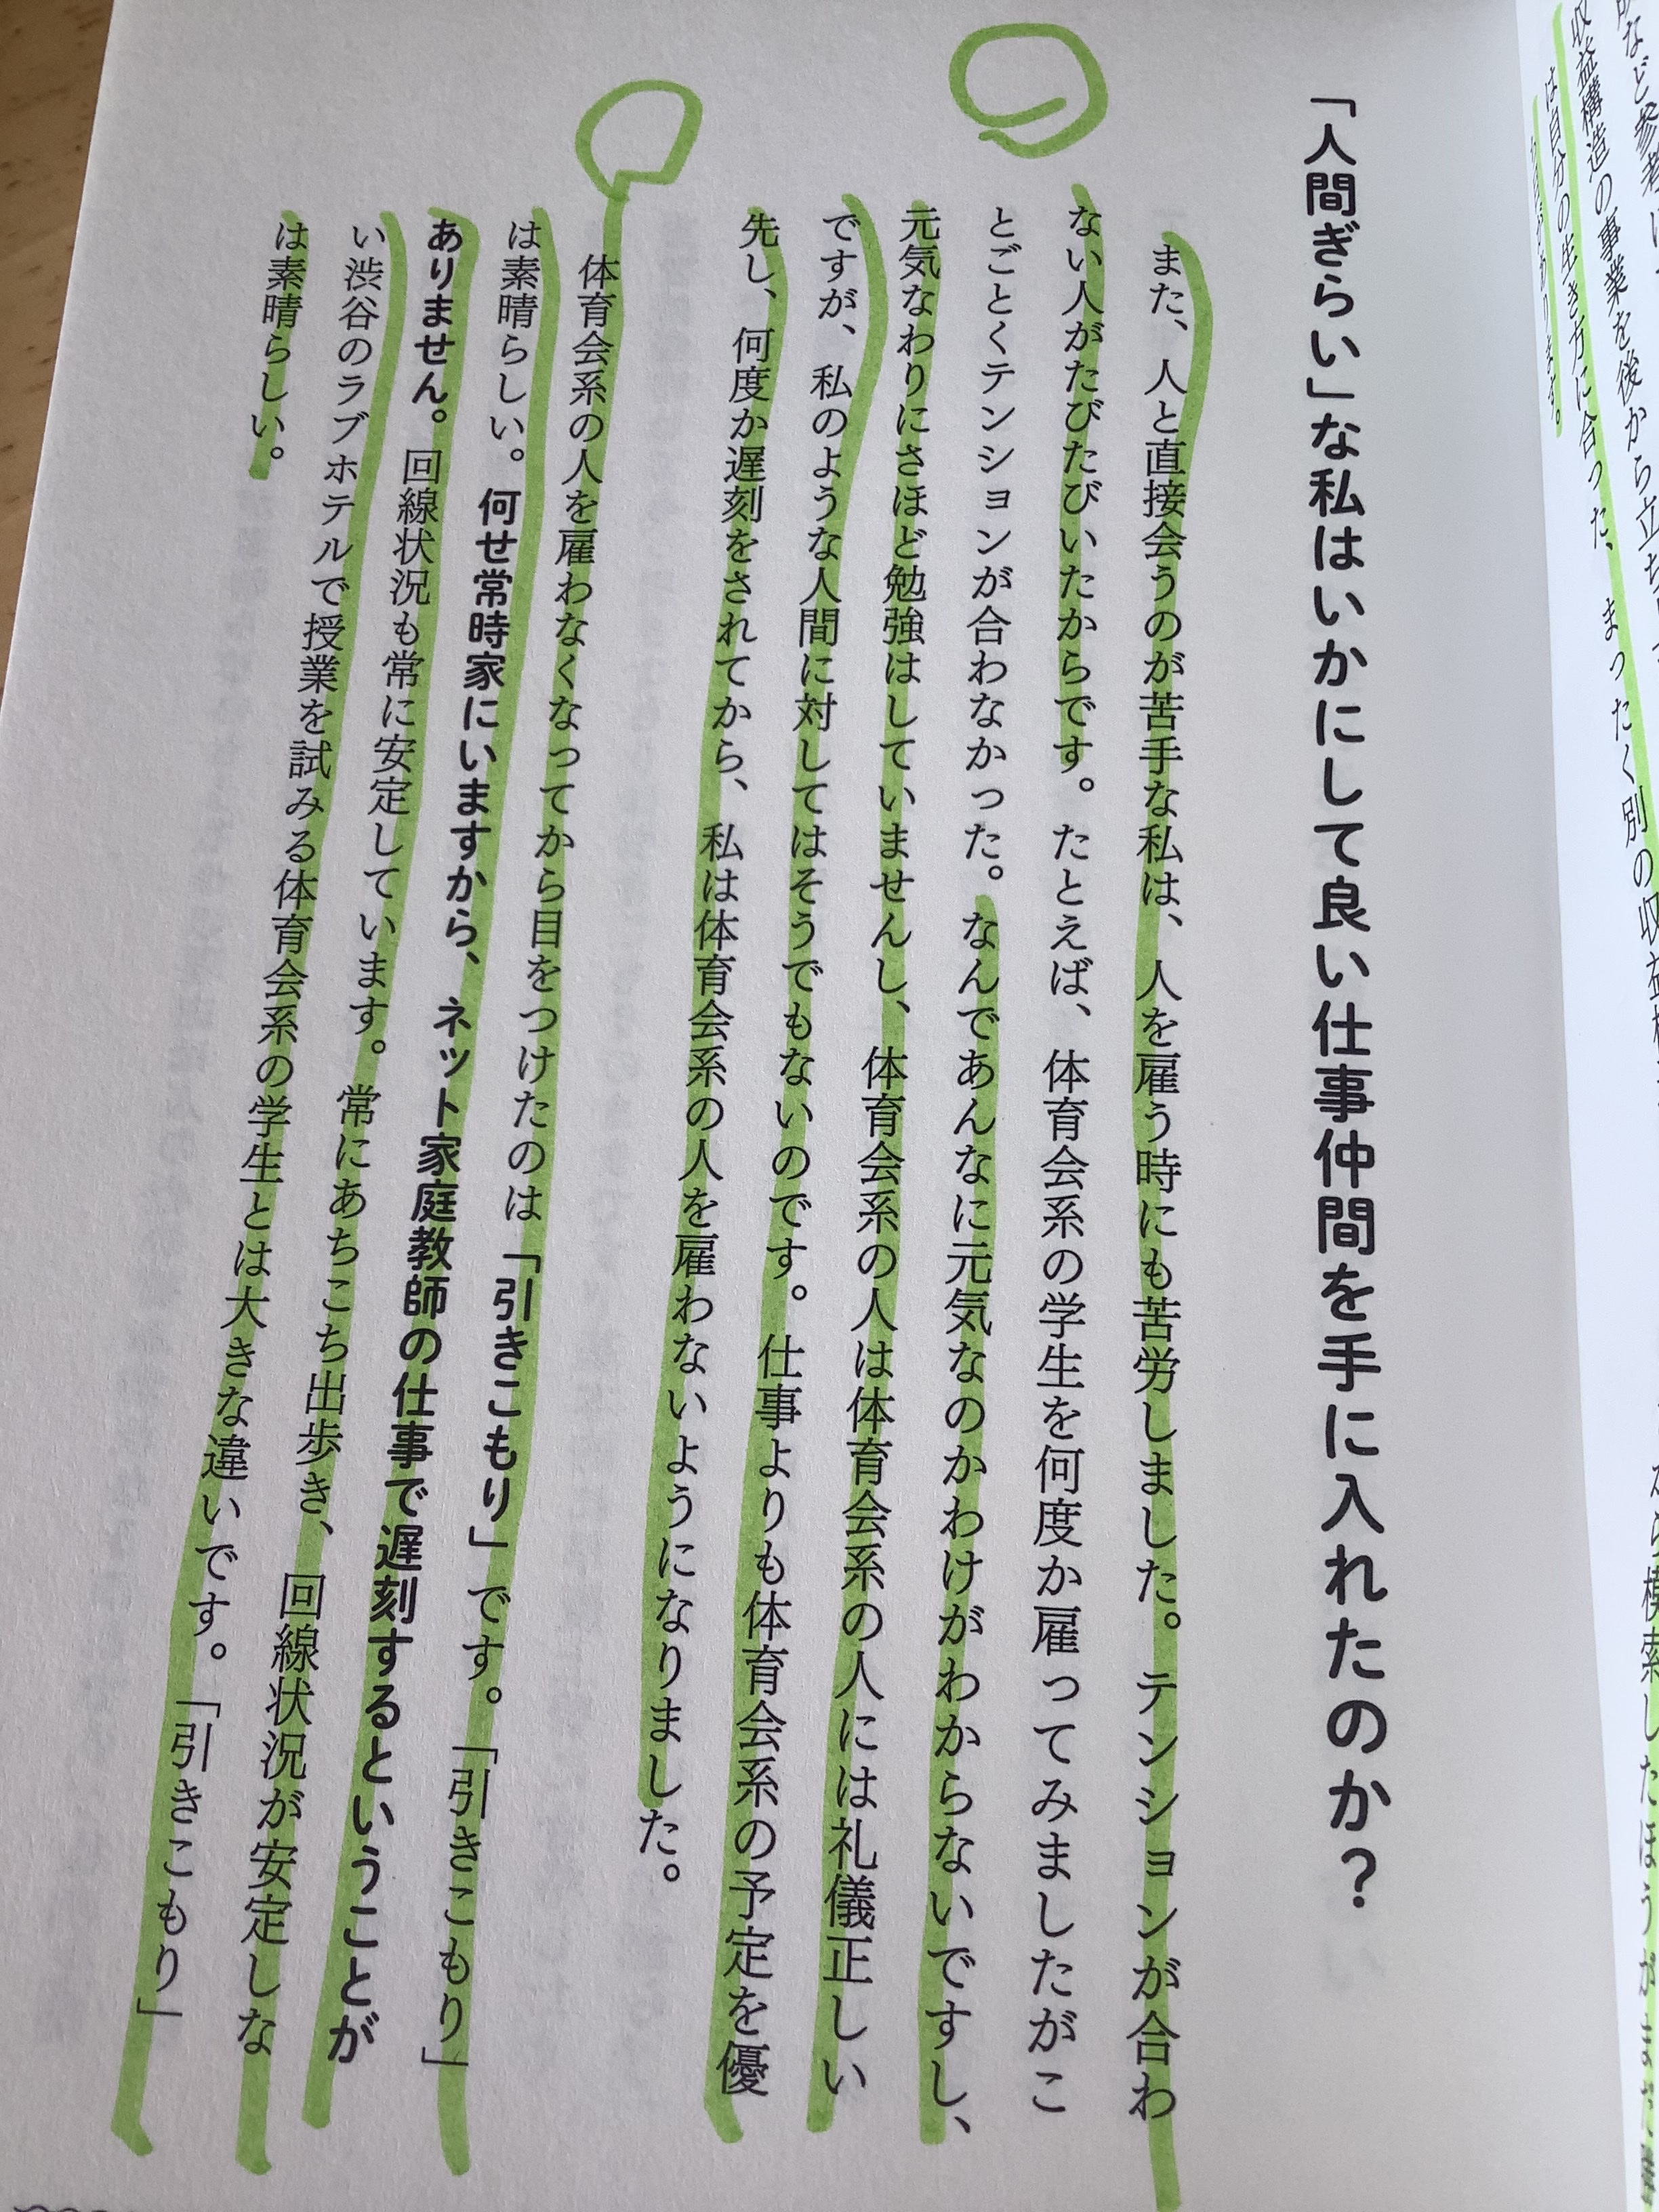 など参考に
収益構造の事業を後から立ち
から模索したほうが
は自分の生き方に合った、まったく別の収益構
があります。
「人間ぎらい」な私はいかにして良い仕事仲間を手に入れたのか？
また、人と直接会うのが苦手な私は、人を雇う時にも苦労しました。テンションが合わ
ない人がたびたびいたからです。たとえば、体育会系の学生を何度か雇ってみましたがこ
とごとくテンションが合わなかった。なんであんなに元気なのかわけがわからないですし、
元気なわりにさほど勉強はしていませんし、体育会系の人は体育会系の人には礼儀正しい
ですが、私のような人間に対してはそうでもないのです。仕事よりも体育会系の予定を優
先し、何度か遅刻をされてから、私は体育会系の人を雇わないようになりました。
体育会系の人を雇わなくなってから目をつけたのは「引きこもり」です。「引きこもり」
は素晴らしい。何せ常時家にいますから、ネット家庭教師の仕事で遅刻するということが
ありません。回線状況も常に安定しています。常にあちこち出歩き、回線状況が安定しな
い渋谷のラブホテルで授業を試みる体育会系の学生とは大きな違いです。「引きこもり」
は素晴らしい。